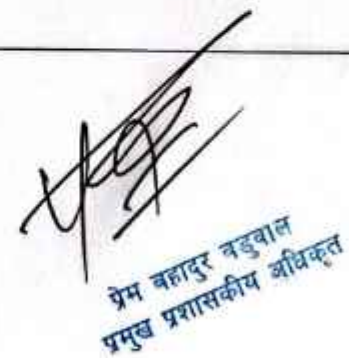 प्रेम बहादुर वडुवाल
प्रमुख प्रशासकीय अधिकृत